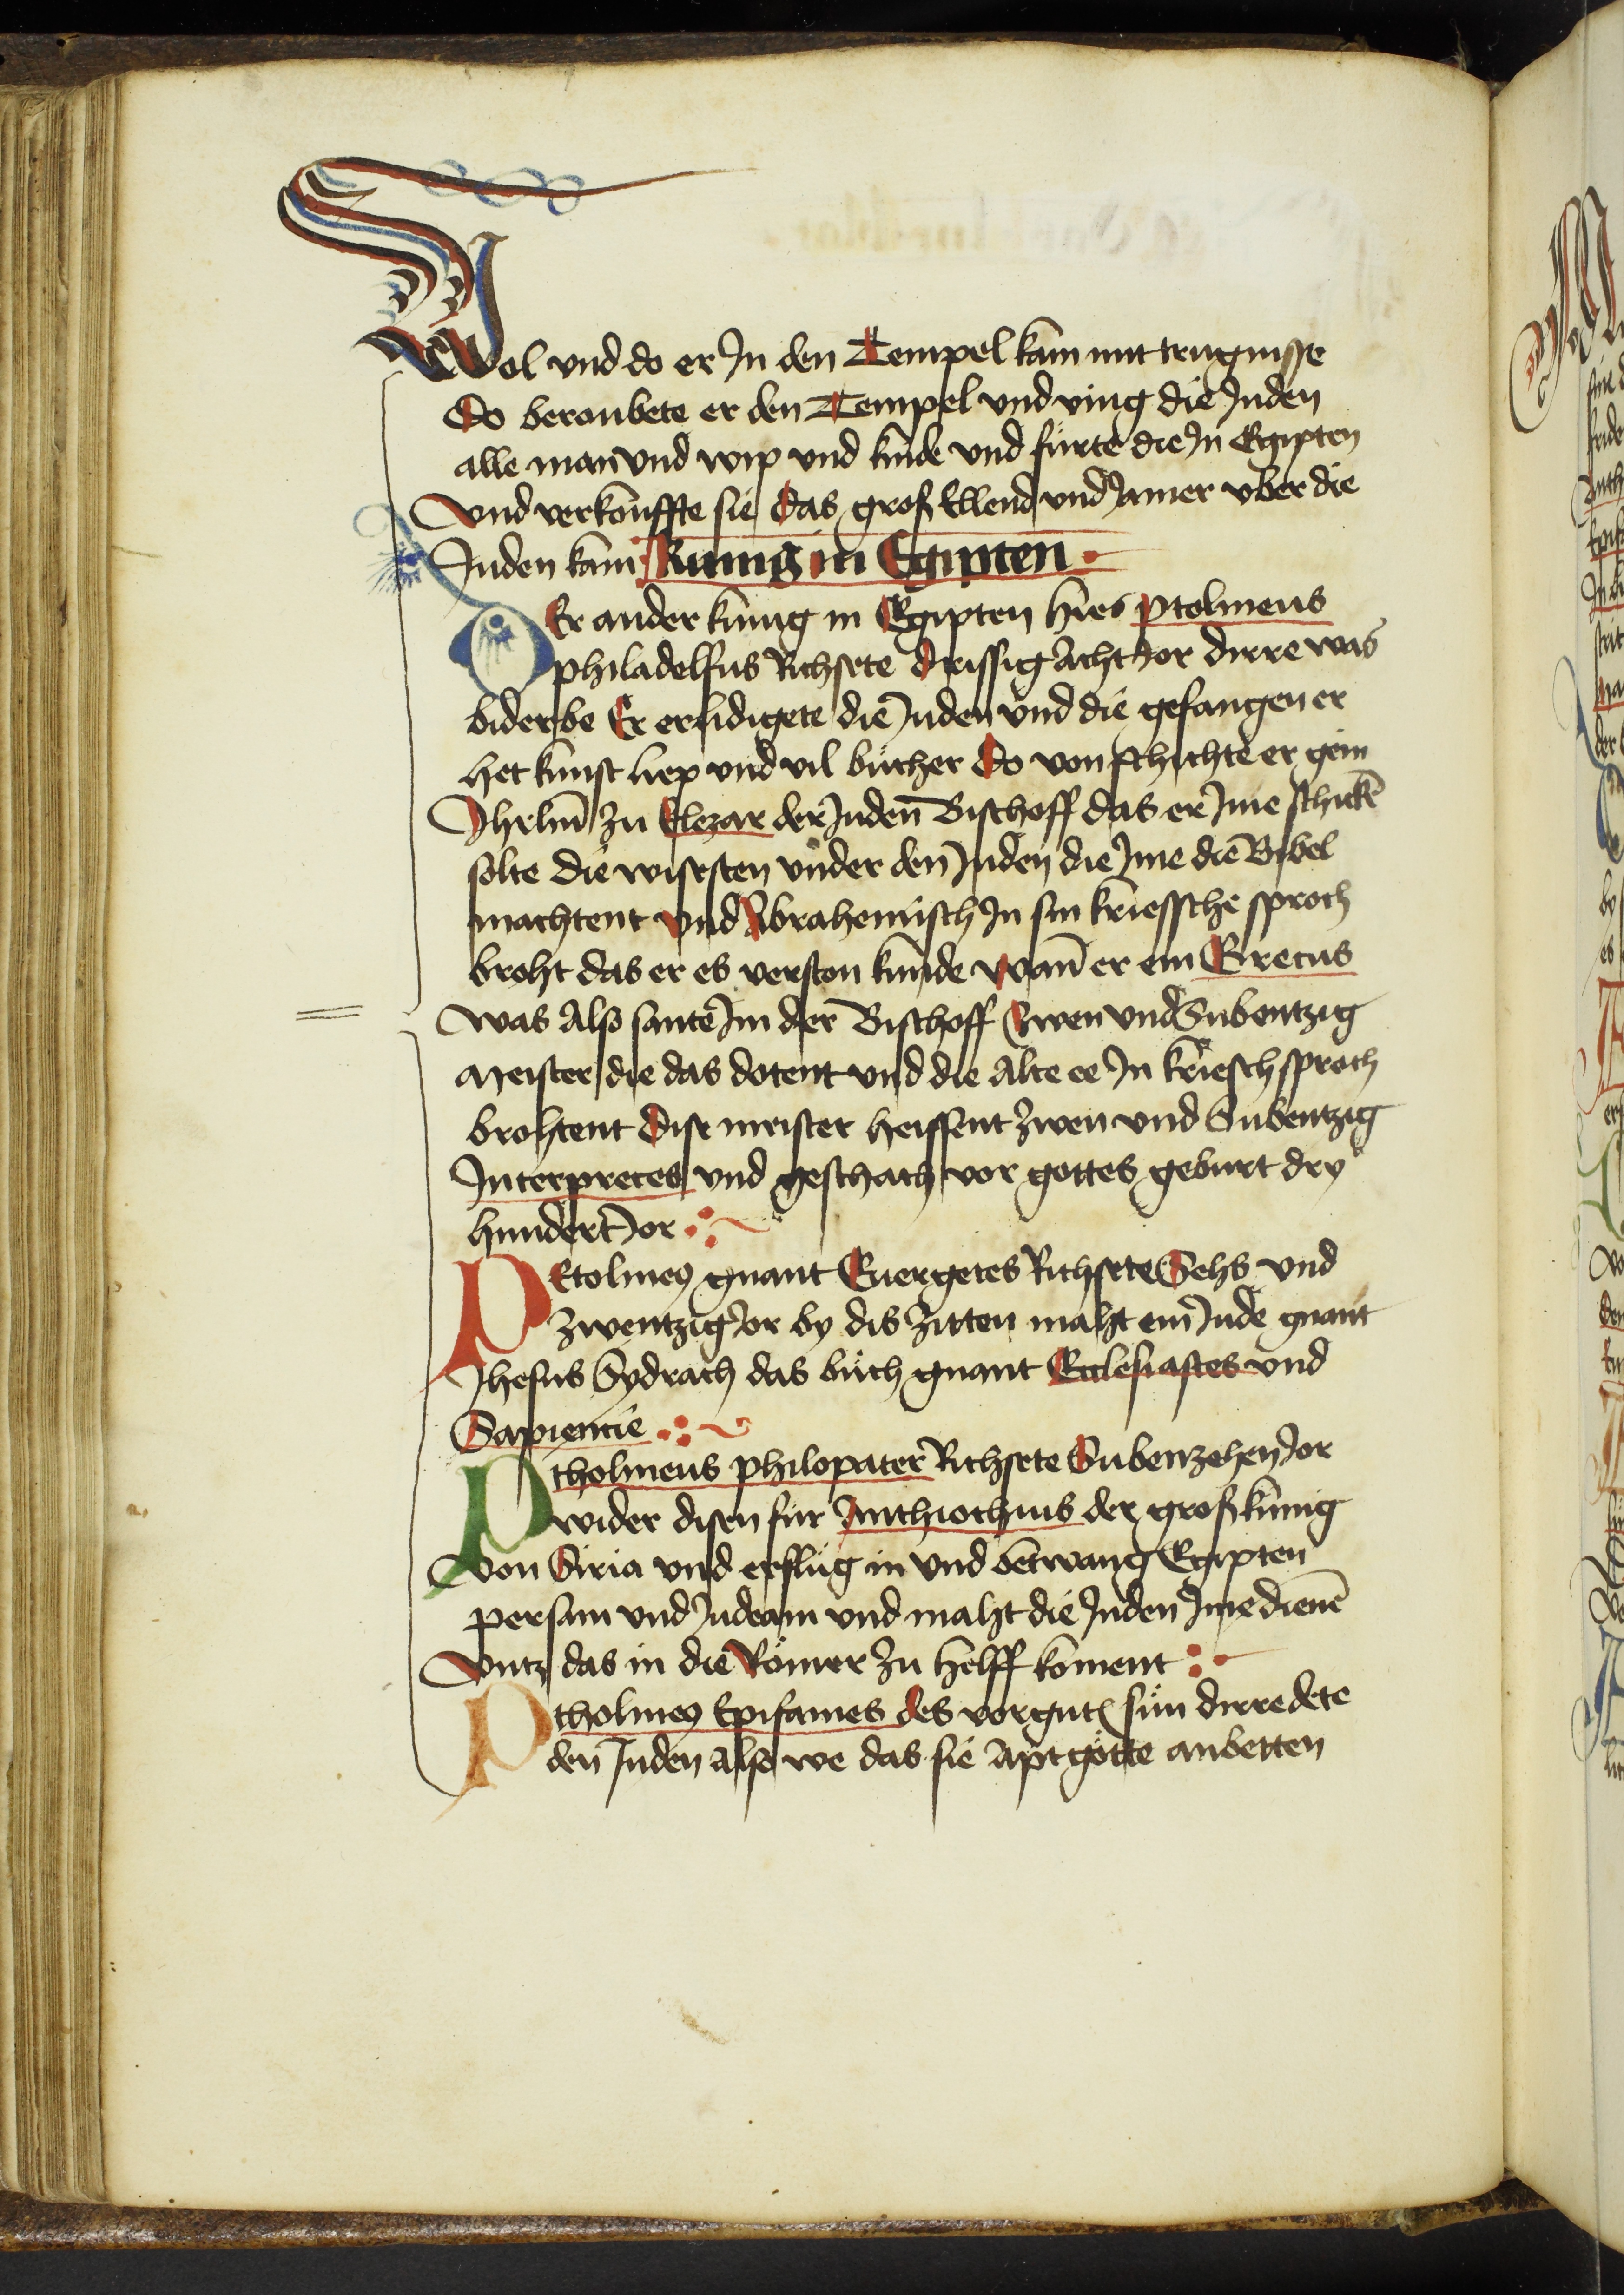 Wol vnd do er Jn den Tempel kam mit trugnisse
Do beroubete er den Tempel vnd ving die Juden
alle man vnd wip vnd kinde vnd fürte die Jn Egipten
vnd verkouffte sie Das groß Ellend vnd Jamer vber die
Juden kam Kunig in Egipten
DEr ander kunig in Egipten hies Ptolmeus
philadelfus Richsete drissig Acht Jor dirre was
biderbe Er erlidigete die Juden vnd die gefangen er
het kunst liep vnd vil bücher Do von schichte er gein
Jhrlm̄ zu Elezar der Juden Bischoff das er Jme schickē
solte die wisesten vnder den Juden die Jme die Bibel
machtent vnd Abrahemisch Jn sin kriessche sproch
broht das er es verston kunde wan̄ er ein Grecus
was Also sante Jm der Bischoff Zwen vnd Subentzig
Meister die das dotent vnd die Alte ee Jn kriesch sproch
brohtent Dise meister heissent zwen vnd Subentzig
Interpretes vnd geschach vor gottes geburt dry
hundert Jor
PEtolmeꝰ gnant Euergetes Richsete Sehs vnd
zwentzig Jor by dis zitten maht ein Jude gnant
Jhesus Sydrach das büch gnant Ecclesiastes vnd
Sapiencie
Ptholmeus philopater Richsete Subenzehen Jor
wider disen für Anthiochius der groß kunig
von Siria vnd erslüg in vnd betwang Egipten
persam vnd Judeam vnd maht die Juden Jme dienē
vntz das in die Römer zu helff koment
Ptholmeꝰ Epifanes des vorgnt̄ sün dirre dete
den Juden Also we das sie Apt götte anbetten